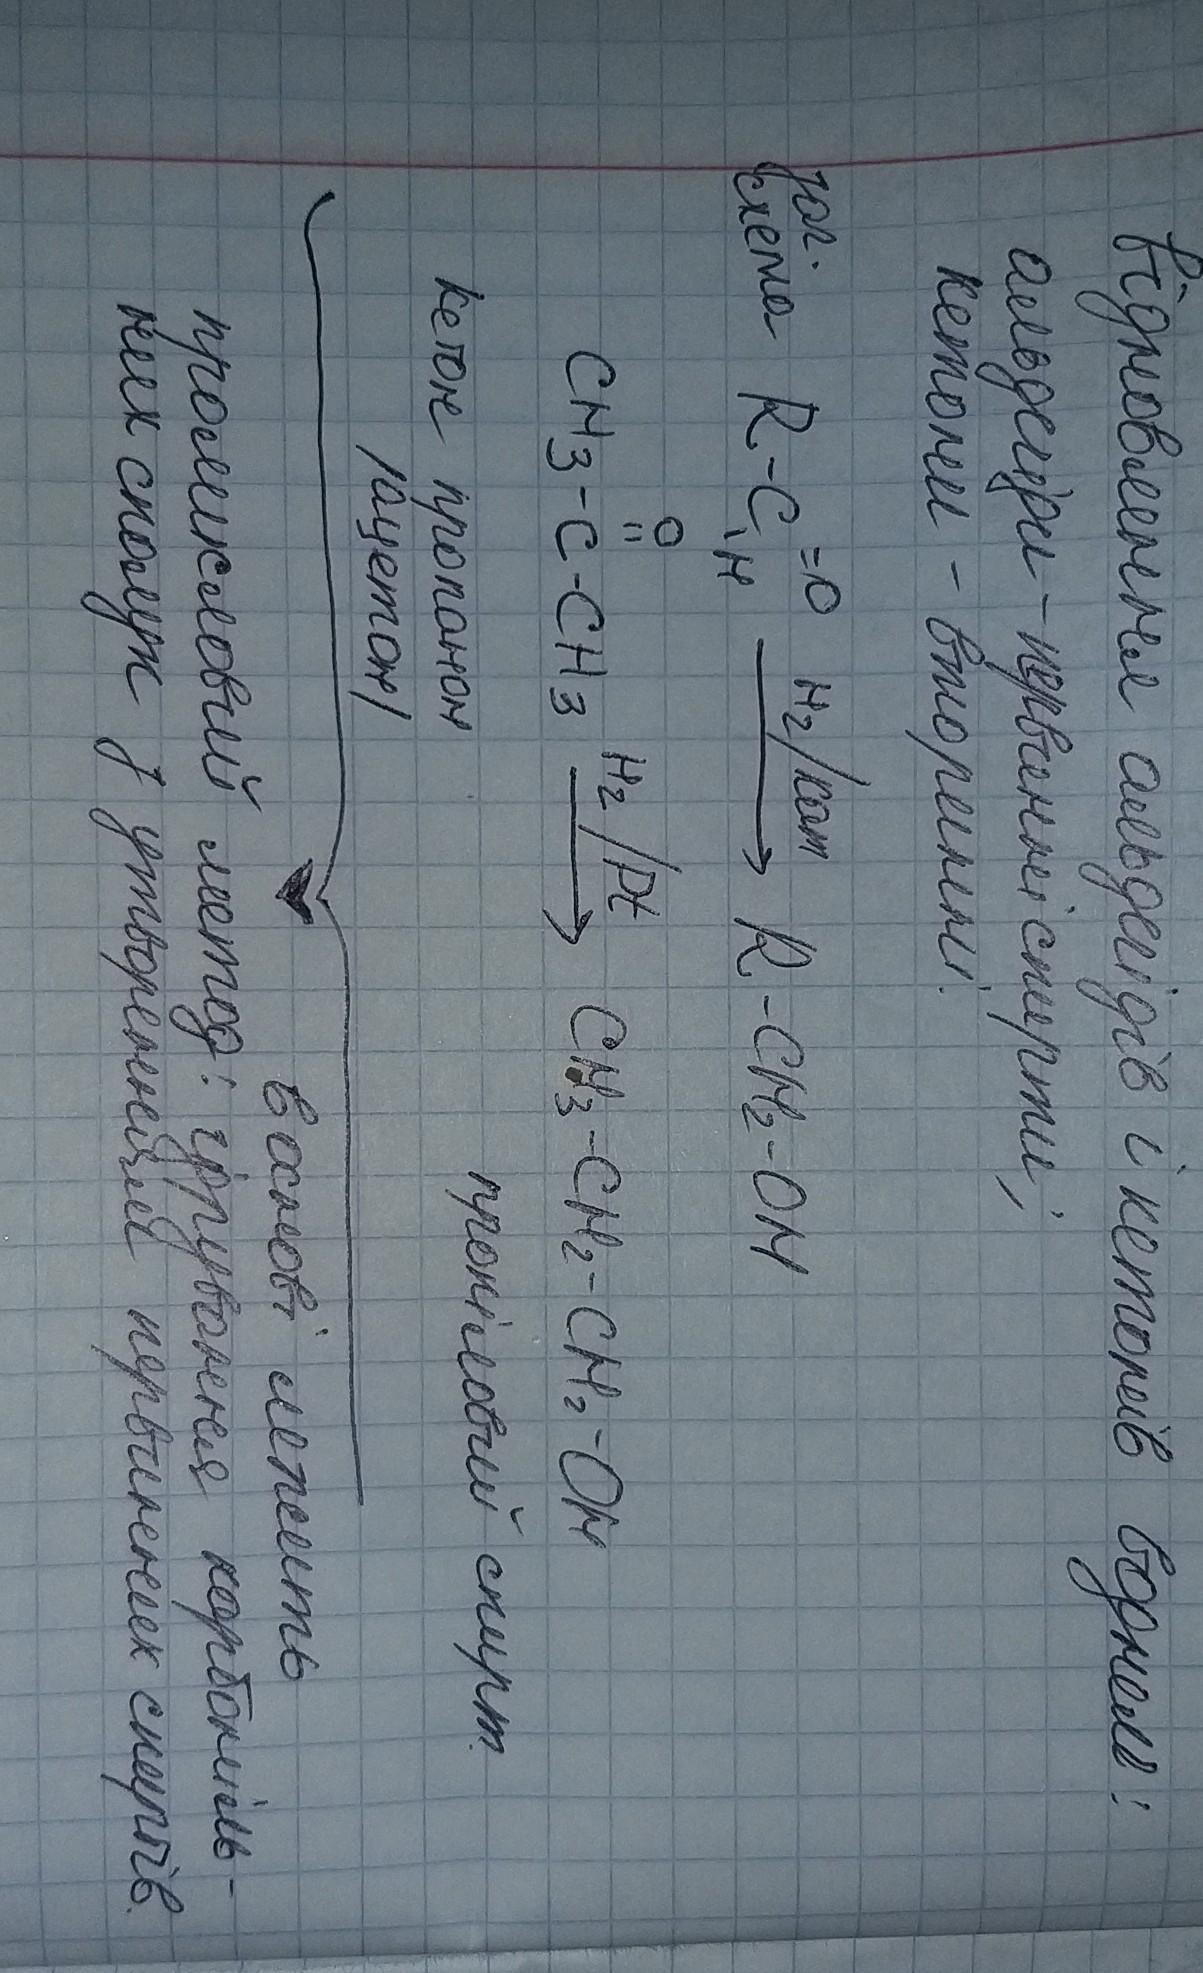 Відновлення альдегідів і кетонів воднем:
альдегіди – первинні спирти,
кетони – вторинні.
заг.
схема R-C=O H H2/кат → R-CH2-OH
CH3-C-CH3 O H2/Pt → CH3-CH2-CH2-OH
кетон пропанон пропіловий спирт.
/ацетон/
в основі лежить
промисловий метод: гідрування карбоніль-
них сполук з утворенням первинних спиртів.